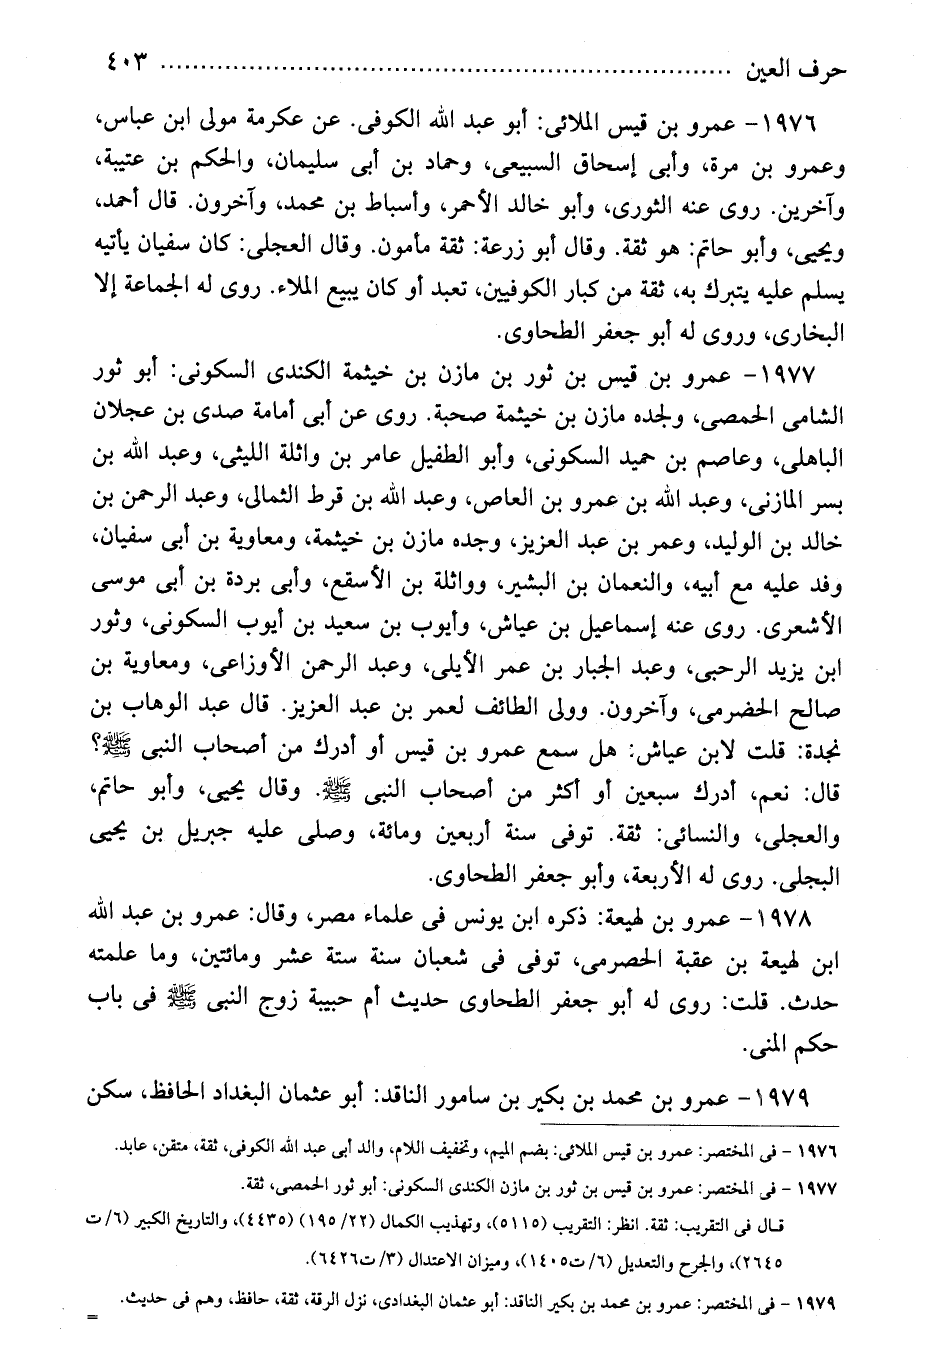 حرف العين ........................................................................ ٤٠٣
١٩٧٦- عمرو بن قيس الملائى: أبو عبد الله الكوفى. عن عكرمة مولى ابن عباس،
وعمرو بن مرة، وأبى إسحاق السبيعى، وحماد بن أبى سليمان، والحكم بن عتيبة،
وآخرين. روى عنه الثورى، وأبو خالد الأحمر، وأسباط بن محمد، وآخرون. قال أحمد،
ويحيى، وأبو حاتم: هو ثقة. وقال أبو زرعة: ثقة مأمون. وقال العجلى: كان سفيان يأتيه
يسلم عليه يتبرك به، ثقة من كبار الكوفيين، تعبد أو كان يبيع الملاء. روى له الجماعة إلا
البخارى، وروى له أبو جعفر الطحاوى.
١٩٧٧- عمرو بن قيس بن ثور بن مازن بن خيثمة الكندى السكونى: أبو ثور
الشامى الحمصى، ولجده مازن بن خيثمة صحبة. روى عن أبى أمامة صدى بن عجلان
الباهلى، وعاصم بن حميد السكونى، وأبو الطفيل عامر بن واثلة الليثى، وعبد الله بن
بسر المازنى، وعبد الله بن عمرو بن العاص، وعبد الله بن قرط الثمالى، وعبد الرحمن بن
خالد بن الوليد، وعمر بن عبد العزيز، وجده مازن بن خيثمة، ومعاوية بن أبى سفيان،
وفد عليه مع أبيه، والنعمان بن البشير، وواثلة بن الأسقع، وأبى بردة بن أبى موسى
الأشعرى. روى عنه إسماعيل بن عياش، وأيوب بن سعيد بن أيوب السكونى، وثور
ابن يزيد الرحبى، وعبد الجبار بن عمر الأيلى، وعبد الرحمن الأوزاعى، ومعاوية بن
صالح الحضرمى، وآخرون. وولى الطائف لعمر بن عبد العزيز. قال عبد الوهاب بن
نجدة: قلت لابن عياش: هل سمع عمرو بن قيس أو أدرك من أصحاب النبى ﷺ؟
قال: نعم، أدرك سبعين أو أكثر من أصحاب النبى ﷺ. وقال يحيى، وأبو حاتم،
والعجلى، والنسائى: ثقة. توفى سنة أربعين ومائة، وصلى عليه جبريل بن يحيى
البجلى. روى له الأربعة، وأبو جعفر الطحاوى.
١٩٧٨- عمرو بن لهيعة: ذكره ابن يونس فى علماء مصر، وقال: عمرو بن عبد الله
ابن لهيعة بن عقبة الحصرمى، توفى فى شعبان سنة ستة عشر ومائتين، وما علمته
حدث. قلت: روى له أبو جعفر الطحاوى حديث أم حبيبة زوج النبى ﷺ فى باب
حكم المنى.
١٩٧٩- عمرو بن محمد بن بكير بن سامور الناقد: أبو عثمان البغداد الحافظ، سكن
١٩٧٦ - فى المختصر: عمرو بن قيس الملائى: بضم الميم، وتخفيف اللام، والد أبى عبد الله الكوفى، ثقة، متقن، عابد.
١٩٧٧ - فى المختصر: عمرو بن قيس بن ثور بن مازن الكندى السكونى: أبو ثور الحمصى، ثقة.
قال فى التقريب: ثقة. انظر: التقريب (٥١١٥)، وتهذيب الكمال (١٩٥/٢٢) (٤٤٣٥)، والتاريخ الكبير (٦/ت
٢٦٤٥)، والجرح والتعديل (٦/ت١٤٠٥)، وميزان الاعتدال (٣/ت٦٤٢٦).
١٩٧٩ - فى المختصر: عمرو بن محمد بن بكير الناقد: أبو عثمان البغدادى، نزل الرقة، ثقة، حافظ، وهم فى حديث.
=